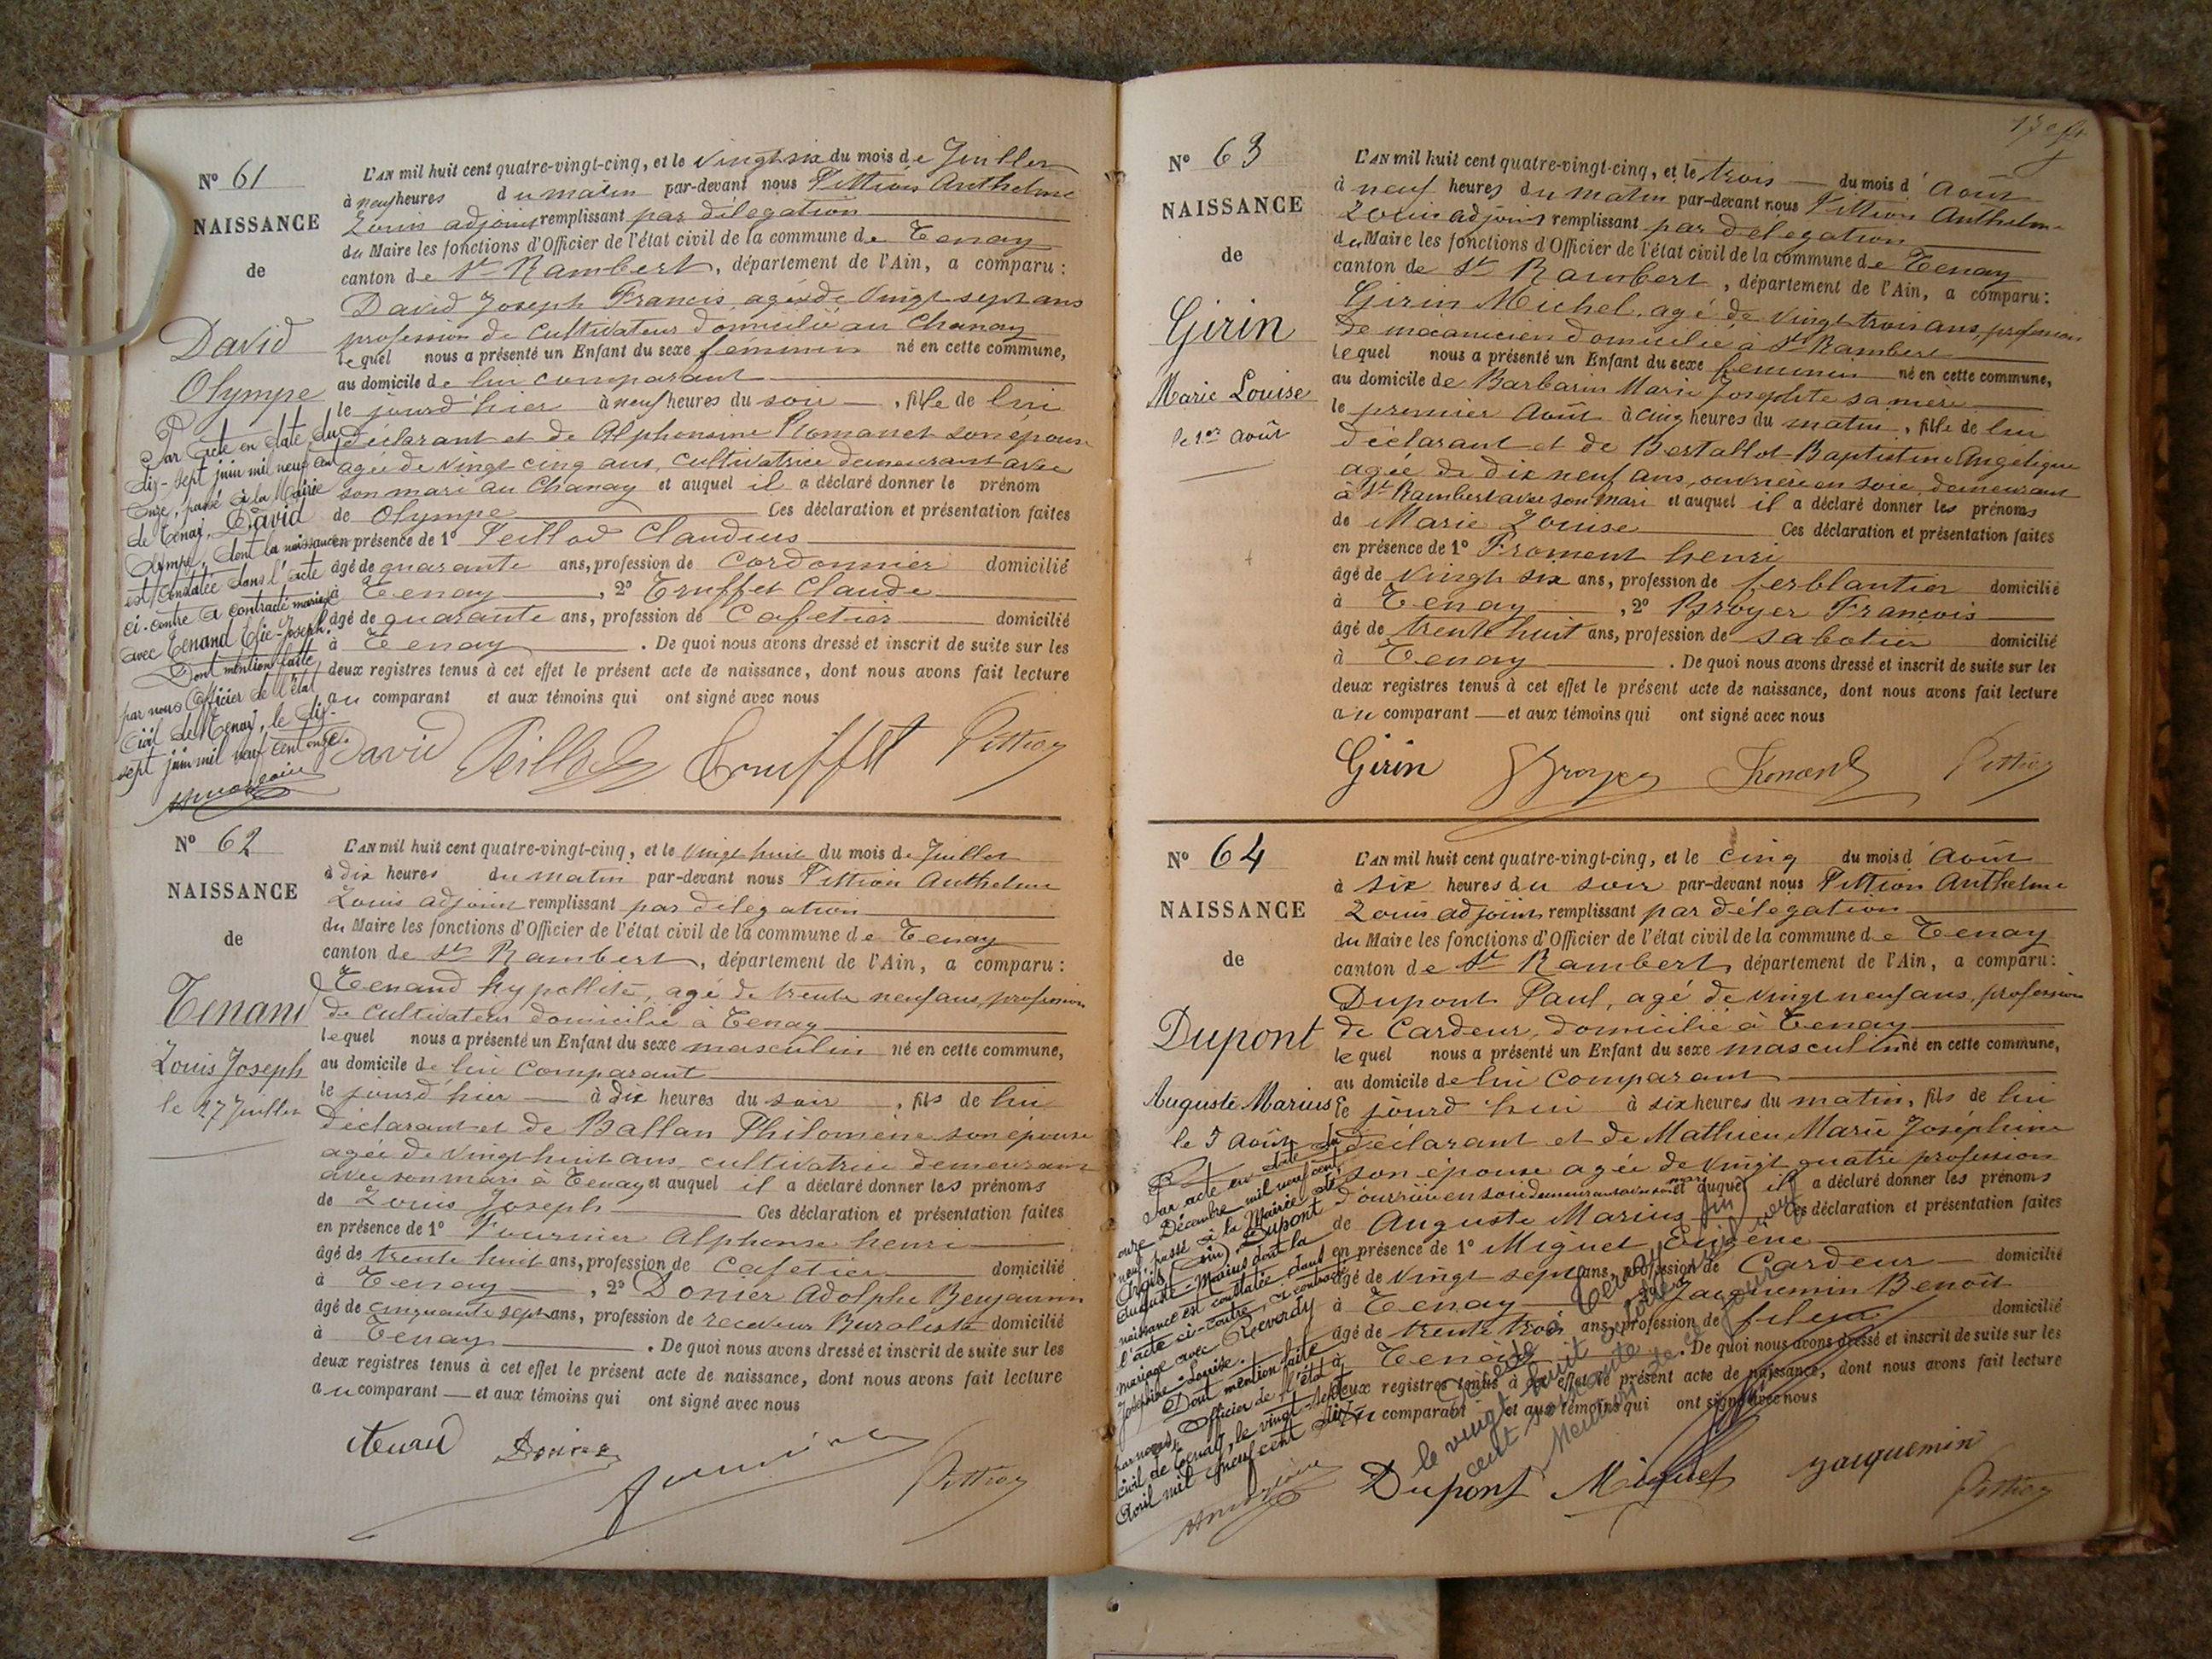 N° 61
NAISSANCE
de
David
Olympe
Par acte en date du
dix-sept juin mil neuf cent
onze, passé à la Mairie
de Tenay, David
Olympe, dont la naissance
est constatée dans l'acte
ci-contre a contracté mariage
avec Tenand Joseph.
Dont mention faite
par nous Officier de l'état
civil de Tenay, le dix-
sept juin mil neuf cent onze.
L'AN mil huit cent quatre-vingt-cinq, et le vingt six du mois de Juillet
à neuf heures du matin par-devant nous Pittion Anthelme
Louis adjoint remplissant par délégation
du Maire les fonctions d'Officier de l'état civil de la commune de Tenay
canton de St Rambert, département de l'Ain, a comparu :
David Joseph Francis, agé de vingt sept ans
profession de cultivateur domicilié au Chanay
lequel nous a présenté un Enfant du sexe féminin né en cette commune,
au domicile de lui comparant
le jourd'hier à neuf heures du soir, fille de lui
déclarant et de Alphonsine Romanet son épouse
agée de vingt cinq ans, cultivatrice demeurant avec
son mari au Chanay et auquel il a déclaré donner le prénom
de Olympe Ces déclaration et présentation faites
en présence de 1° Peillod Claudius
âgé de quarante ans, profession de Cordonnier domicilié
à Tenay, 2° Truffet Claude
âgé de quarante ans, profession de Cafetier domicilié
à Tenay. De quoi nous avons dressé et inscrit de suite sur les
deux registres tenus à cet effet le présent acte de naissance, dont nous avons fait lecture
au comparant et aux témoins qui ont signé avec nous
David Peillod Truffet Pittion
N° 62
NAISSANCE
de
Tenand
Louis Joseph
le 27 Juillet
L'AN mil huit cent quatre-vingt-cinq, et le vingt huit du mois de Juillet
à dix heures du matin par-devant nous Pittion Anthelme
Louis adjoint remplissant par délégation
du Maire les fonctions d'Officier de l'état civil de la commune de Tenay
canton de St Rambert, département de l'Ain, a comparu :
Tenand hypollite, agé de trente neuf ans, profession
de cultivateur domicilié à Tenay
lequel nous a présenté un Enfant du sexe masculin né en cette commune,
au domicile de lui comparant
le jourd'hier à dix heures du soir, fils de lui
déclarant et de Ballan Philomène son épouse
agée de vingt huit ans, cultivatrice demeurant
avec son mari à Tenay et auquel il a déclaré donner les prénoms
de Louis Joseph Ces déclaration et présentation faites
en présence de 1° Fournier Alphonse henri
âgé de trente huit ans, profession de cafetier domicilié
à Tenay, 2° Donier Adolphe Benjamin
âgé de cinquante sept ans, profession de receveur Buraliste domicilié
à Tenay. De quoi nous avons dressé et inscrit de suite sur les
deux registres tenus à cet effet le présent acte de naissance, dont nous avons fait lecture
au comparant et aux témoins qui ont signé avec nous
Tenand Donier Fournier Pittion
N° 63
NAISSANCE
de
Girin
Marie Louise
le 1er août
L'AN mil huit cent quatre-vingt-cinq, et le trois du mois d'Août
à neuf heures du matin par-devant nous Pittion Anthelme
Louis adjoint remplissant par délégation
du Maire les fonctions d'Officier de l'état civil de la commune de Tenay
canton de St Rambert, département de l'Ain, a comparu :
Girin Michel, agé de vingt trois ans, profession
de mécanicien domicilié à St Rambert
lequel nous a présenté un Enfant du sexe féminin né en cette commune,
au domicile de Barbarin Marie Josephte sa mère
le premier Août à cinq heures du matin, fille de lui
déclarant et de Bertallot Baptistine Angélique
agée de dix neuf ans, ouvrière en soie, demeurant
à St Rambert avec son mari et auquel il a déclaré donner les prénoms
de Marie Louise Ces déclaration et présentation faites
en présence de 1° Froment henri
âgé de vingt six ans, profession de ferblantier domicilié
à Tenay, 2° Broyer François
âgé de trente huit ans, profession de sabotier domicilié
à Tenay. De quoi nous avons dressé et inscrit de suite sur les
deux registres tenus à cet effet le présent acte de naissance, dont nous avons fait lecture
au comparant et aux témoins qui ont signé avec nous
Girin Broyer Froment Pittion
N° 64
NAISSANCE
de
Dupont
Auguste Marius
le 5 Août
Par acte en date du
onze Décembre mil neuf cent
neuf, passé à la Mairie de
Dupont
Auguste-Marius dont la
naissance est constatée dans
l'acte ci-contre, a contracté
mariage avec Reverdy
Joséphine-Louise.
Dont mention faite
par nous, Officier de l'état
civil de Tenay, le vingt-sept
Avril mil neuf cent dix
L'AN mil huit cent quatre-vingt-cinq, et le cinq du mois d'Août
à six heures du soir par-devant nous Pittion Anthelme
Louis adjoint remplissant par délégation
du Maire les fonctions d'Officier de l'état civil de la commune de Tenay
canton de St Rambert, département de l'Ain, a comparu :
Dupont Paul, agé de vingt neuf ans, profession
de Cardeur, domicilié à Tenay
lequel nous a présenté un Enfant du sexe masculin né en cette commune,
au domicile de lui comparant
le jourd'hui à six heures du matin, fils de lui
déclarant et de Mathieu Marie Joséphine
son épouse agée de vingt quatre profession
d'ouvrière en soie demeurant avec son mari et auquel il a déclaré donner les prénoms
de Auguste Marius Ces déclaration et présentation faites
en présence de 1° Miguet Eugène
âgé de vingt sept ans, profession de Cardeur domicilié
à Tenay, 2° Jacquemin Benoit
âgé de trente trois ans, profession de fileur domicilié
à Tenay. De quoi nous avons dressé et inscrit de suite sur les
deux registres tenus à cet effet le présent acte de naissance, dont nous avons fait lecture
au comparant et aux témoins qui ont signé avec nous
Décédé à Tenay (Ain)
le vingt huit mil neuf
cent soixante
Mention
Dupont Miguet Jacquemin Pittion